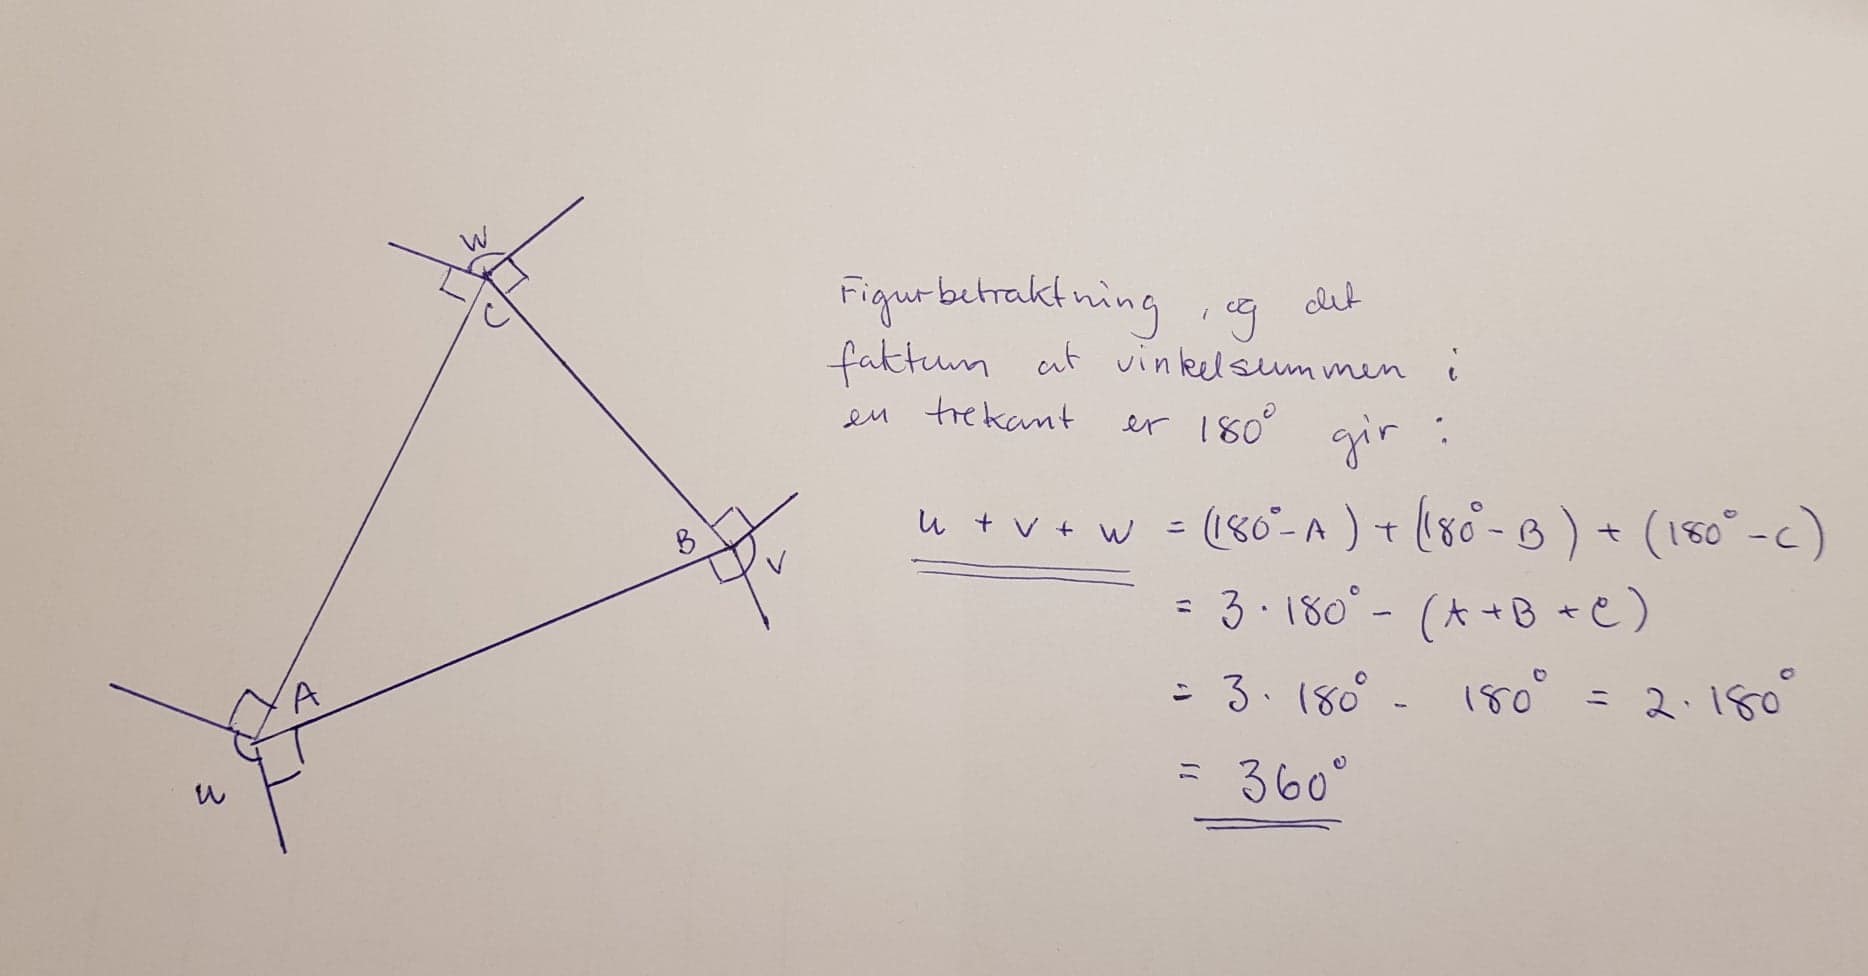 W
C
B
V
A
u
Figurbetraktning, og det
faktum at vinkelsummen i
en trekant er 180° gir :
u + v + w = (180°-A) + (180°-B) + (180°-C)
= 3·180° - (A+B+C)
= 3·180° - 180° = 2·180°
= 360°